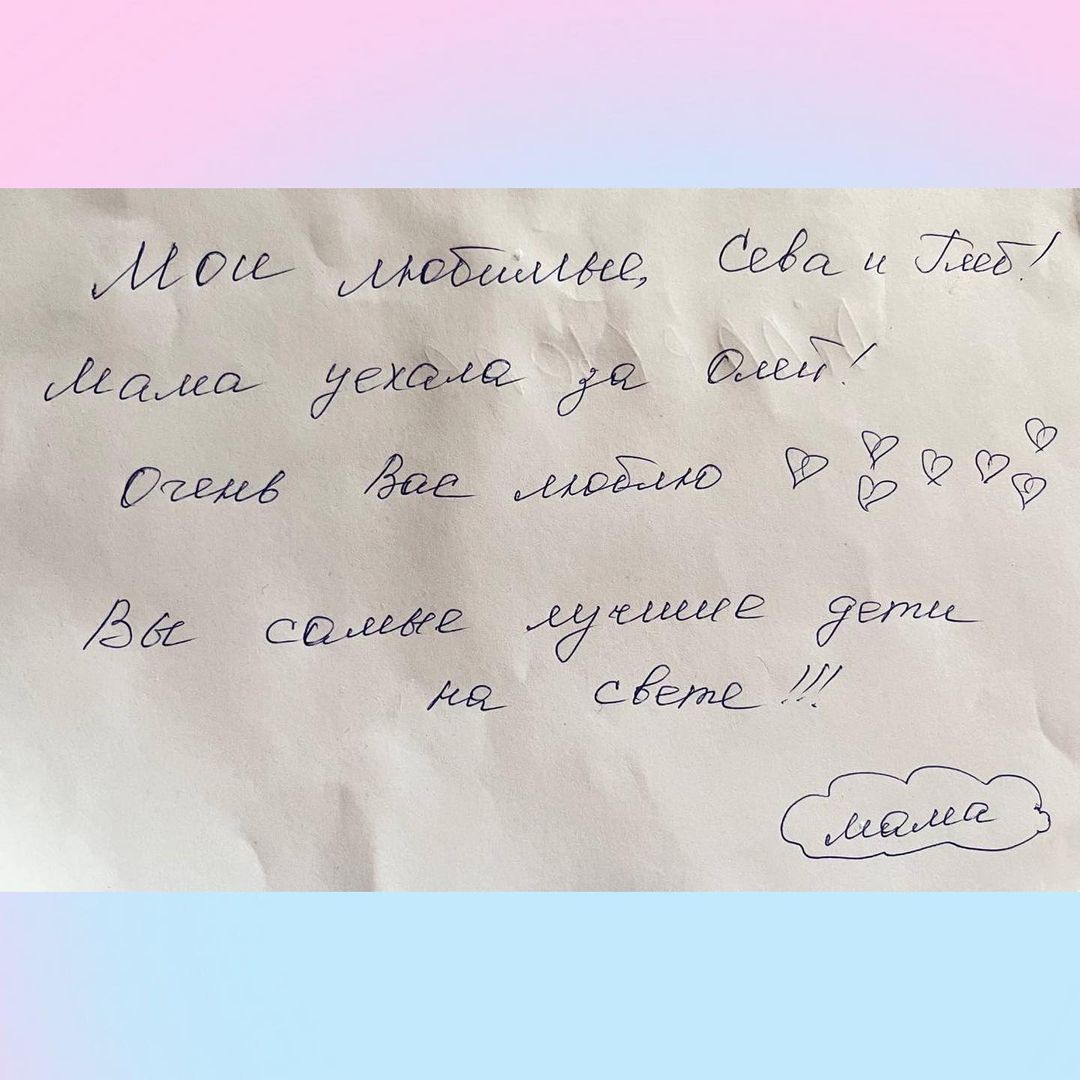 Мои любимые, Сева и Глеб!
Мама уехала за Олей!
Очень Вас люблю
Вы самые лучшие дети
на свете!!!
мама